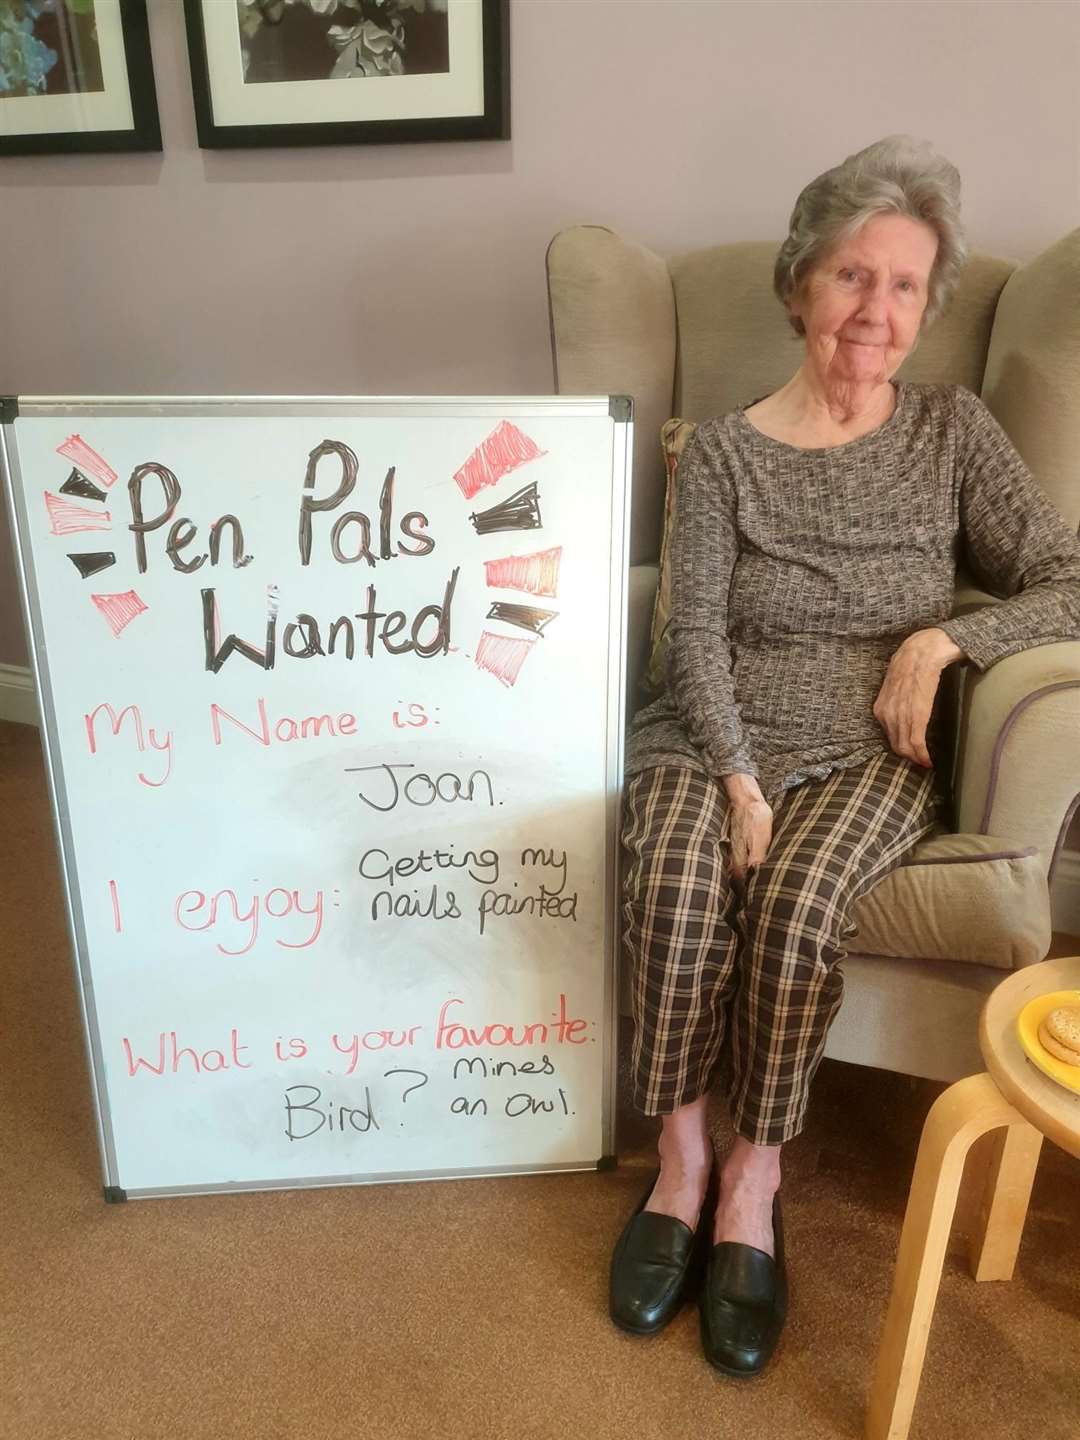 Pen Pals
Wanted.
My Name is:
Joan.
I enjoy: Getting my
nails painted
What is your favourite:
Bird? Mines
an owl.